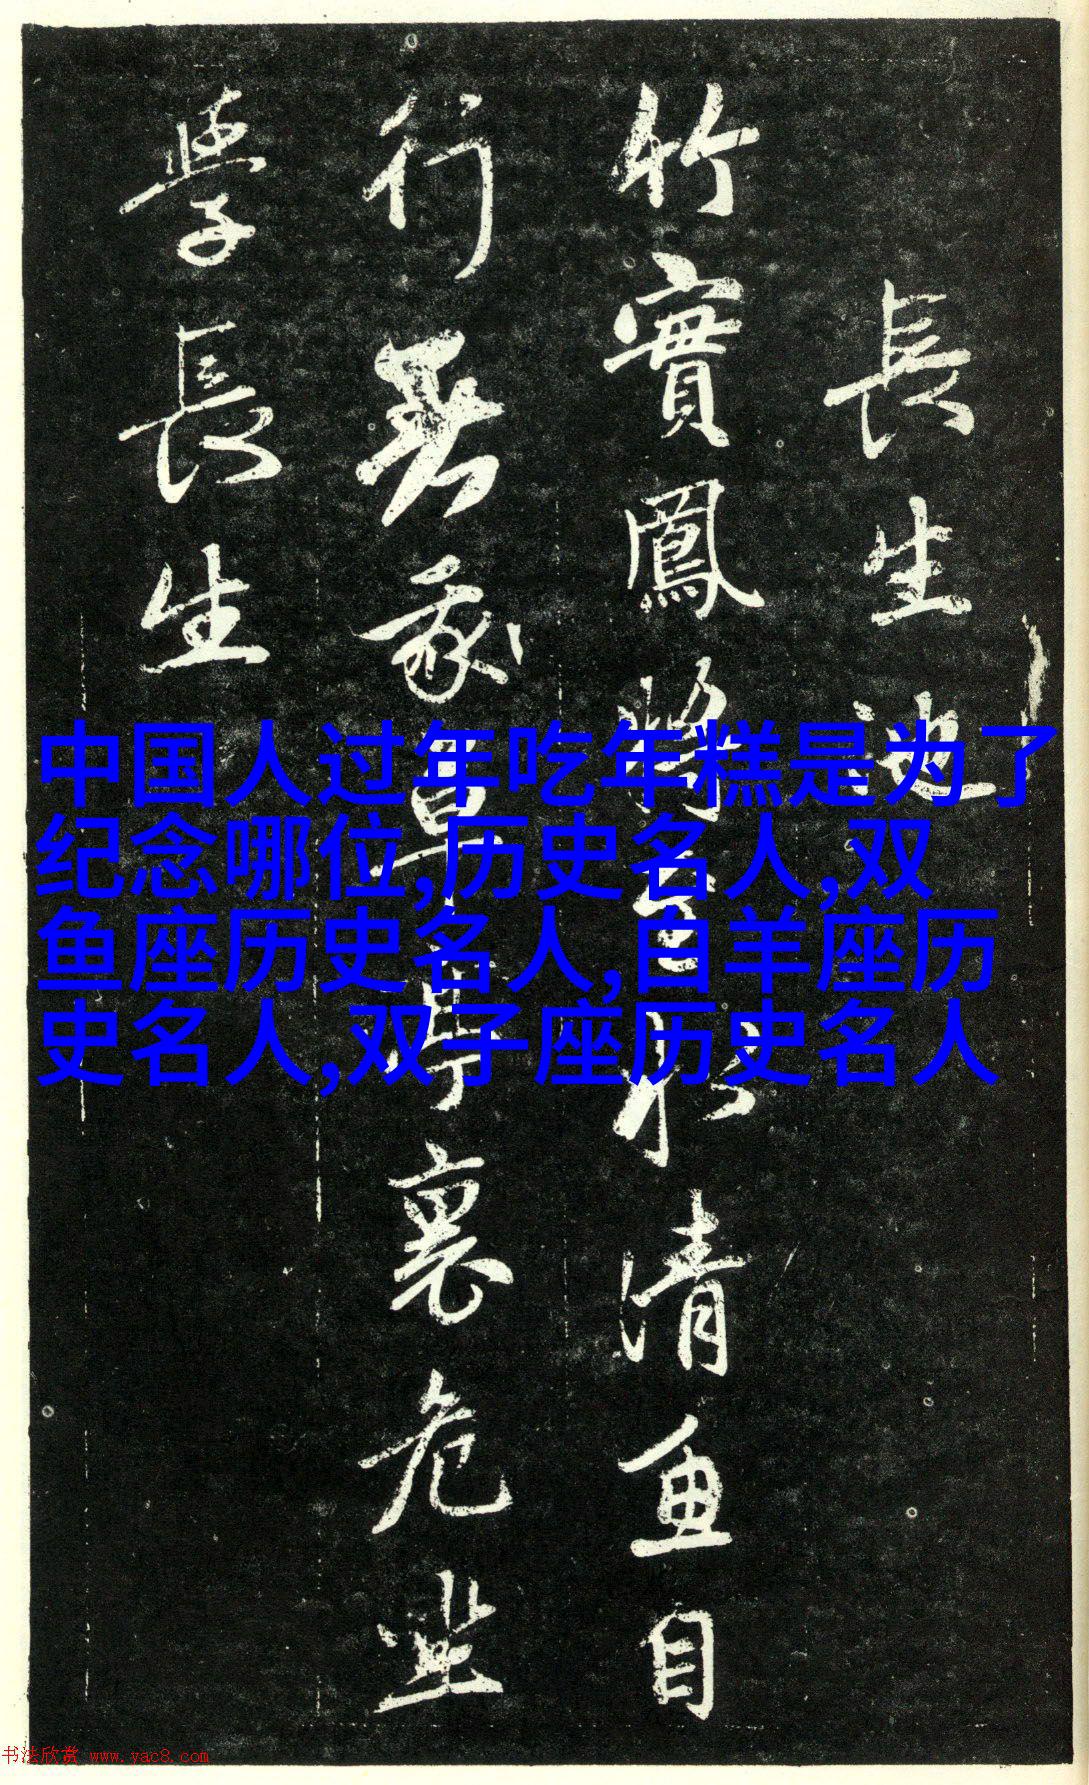 長生池
竹實鳳將至水清魚自
行我草亭裏危坐
學長生
中国人过年吃年糕是为了
纪念哪位,历史名人,双
鱼座历史名人,白羊座历
史名人,双子座历史名人
书法欣赏 www.yac8.com